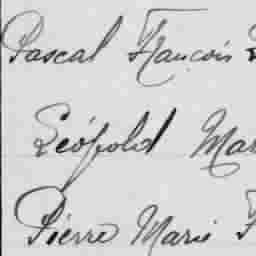 Pascal François
Léopold Mar
Pierre Marie F